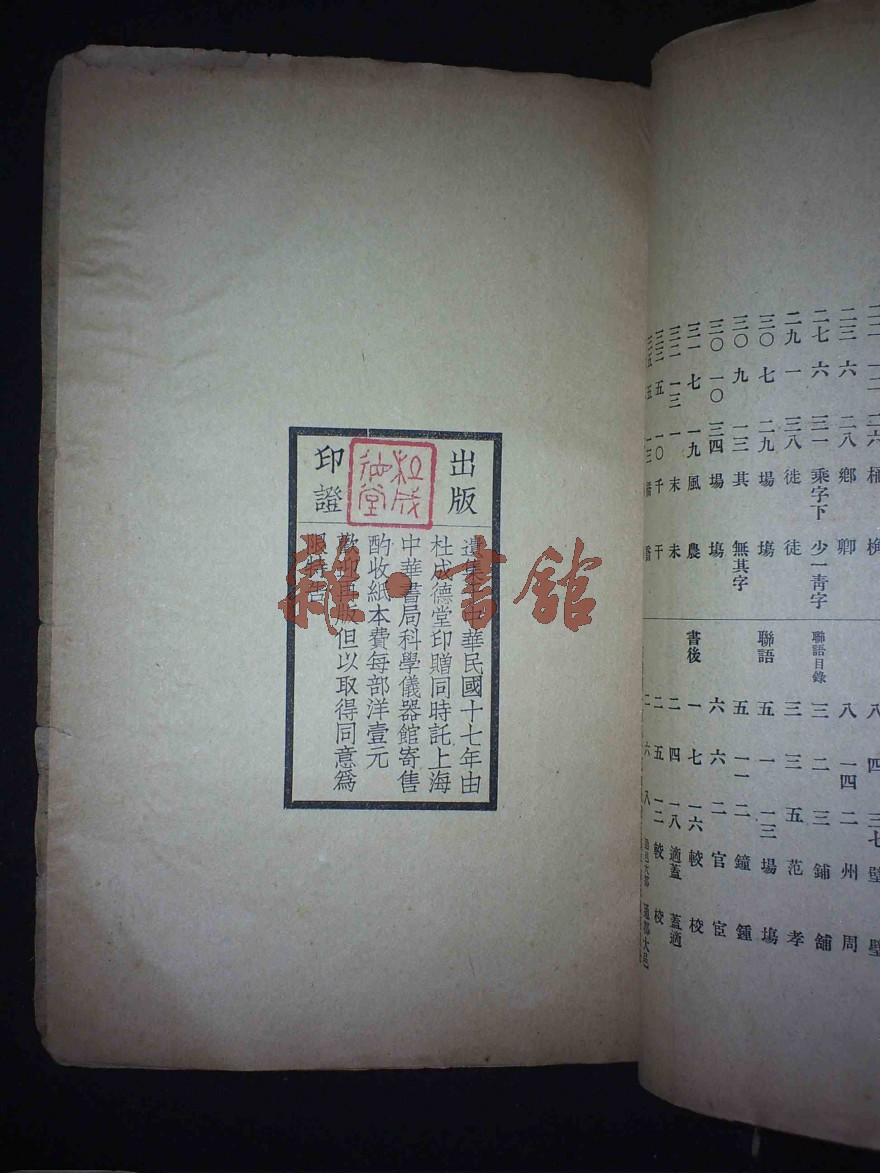 二三 六 二八 鄉 卿
二七 六 三一 乘字下 少一靑字
二九 一 三八 徒
三〇 七 二九 場 塲
三〇 九 一三 其 無其字
三〇 一〇 三四 場 塲
三一 七 一九 風 農
三二 一三 一 末 未
三三 五 一〇 千 干
三五 五 一三
八 四 三七 璧
八 一四 二 州 周
聯語目錄 三 二 三 鋪 舖
三 三 五 范 孝
聯語 五 一 一三 場 塲
五 一一 二 鐘 鍾
六 六 二 官 宦
書後 一 七 一六 較 校
二 四 一八 適蓋 蓋適
二 五 一二 較 校
二 六 八 通都大邑
出版
印證
杜成
德堂
遺集 中華民國十七年由
杜成德堂印贈同時託上海
中華書局科學儀器館寄售
酌收紙本費每部洋壹元
歡迎再版但以取得同意爲
限特告
雜·書館